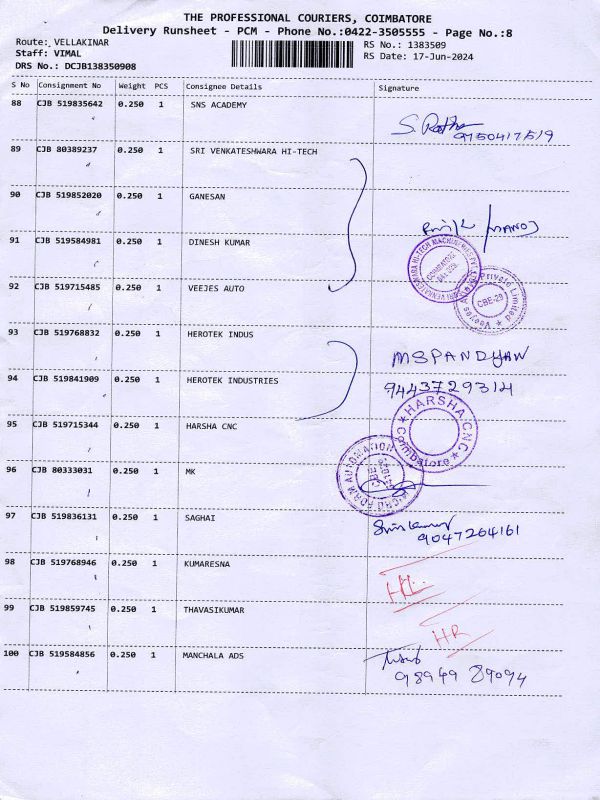 THE PROFESSIONAL COURIERS, COIMBATORE
Delivery Runsheet - PCM - Phone No.:0422-3505555 - Page No.:8
Route: VELLAKINAR RS No.: 1383509
Staff: VIMAL RS Date: 17-Jun-2024
DRS No.: DCJB138350908
S No Consignment No Weight PCS Consignee Details Signature
88 CJB 519835642 0.250 1 SNS ACADEMY
9750417519
89 CJB 80389237 0.250 1 SRI VENKATESHWARA HI-TECH
90 CJB 519852020 0.250 1 GANESAN
MANOJ
91 CJB 519584981 0.250 1 DINESH KUMAR
92 CJB 519715485 0.250 1 VEEJES AUTO
Private Limited
CBE-29
93 CJB 519768832 0.250 1 HEROTEK INDUS
MSPANDIYAN
94 CJB 519841909 0.250 1 HEROTEK INDUSTRIES
9443729314
95 CJB 519715344 0.250 1 HARSHA CNC
HARSHA CNC
Coimbatore
96 CJB 80333031 0.250 1 MK
MICRO FORM AUTOMATION
97 CJB 519836131 0.250 1 SAGHAI
9047264161
98 CJB 519768946 0.250 1 KUMARESNA
99 CJB 519859745 0.250 1 THAVASIKUMAR
HR
100 CJB 519584856 0.250 1 MANCHALA ADS
98949 89094